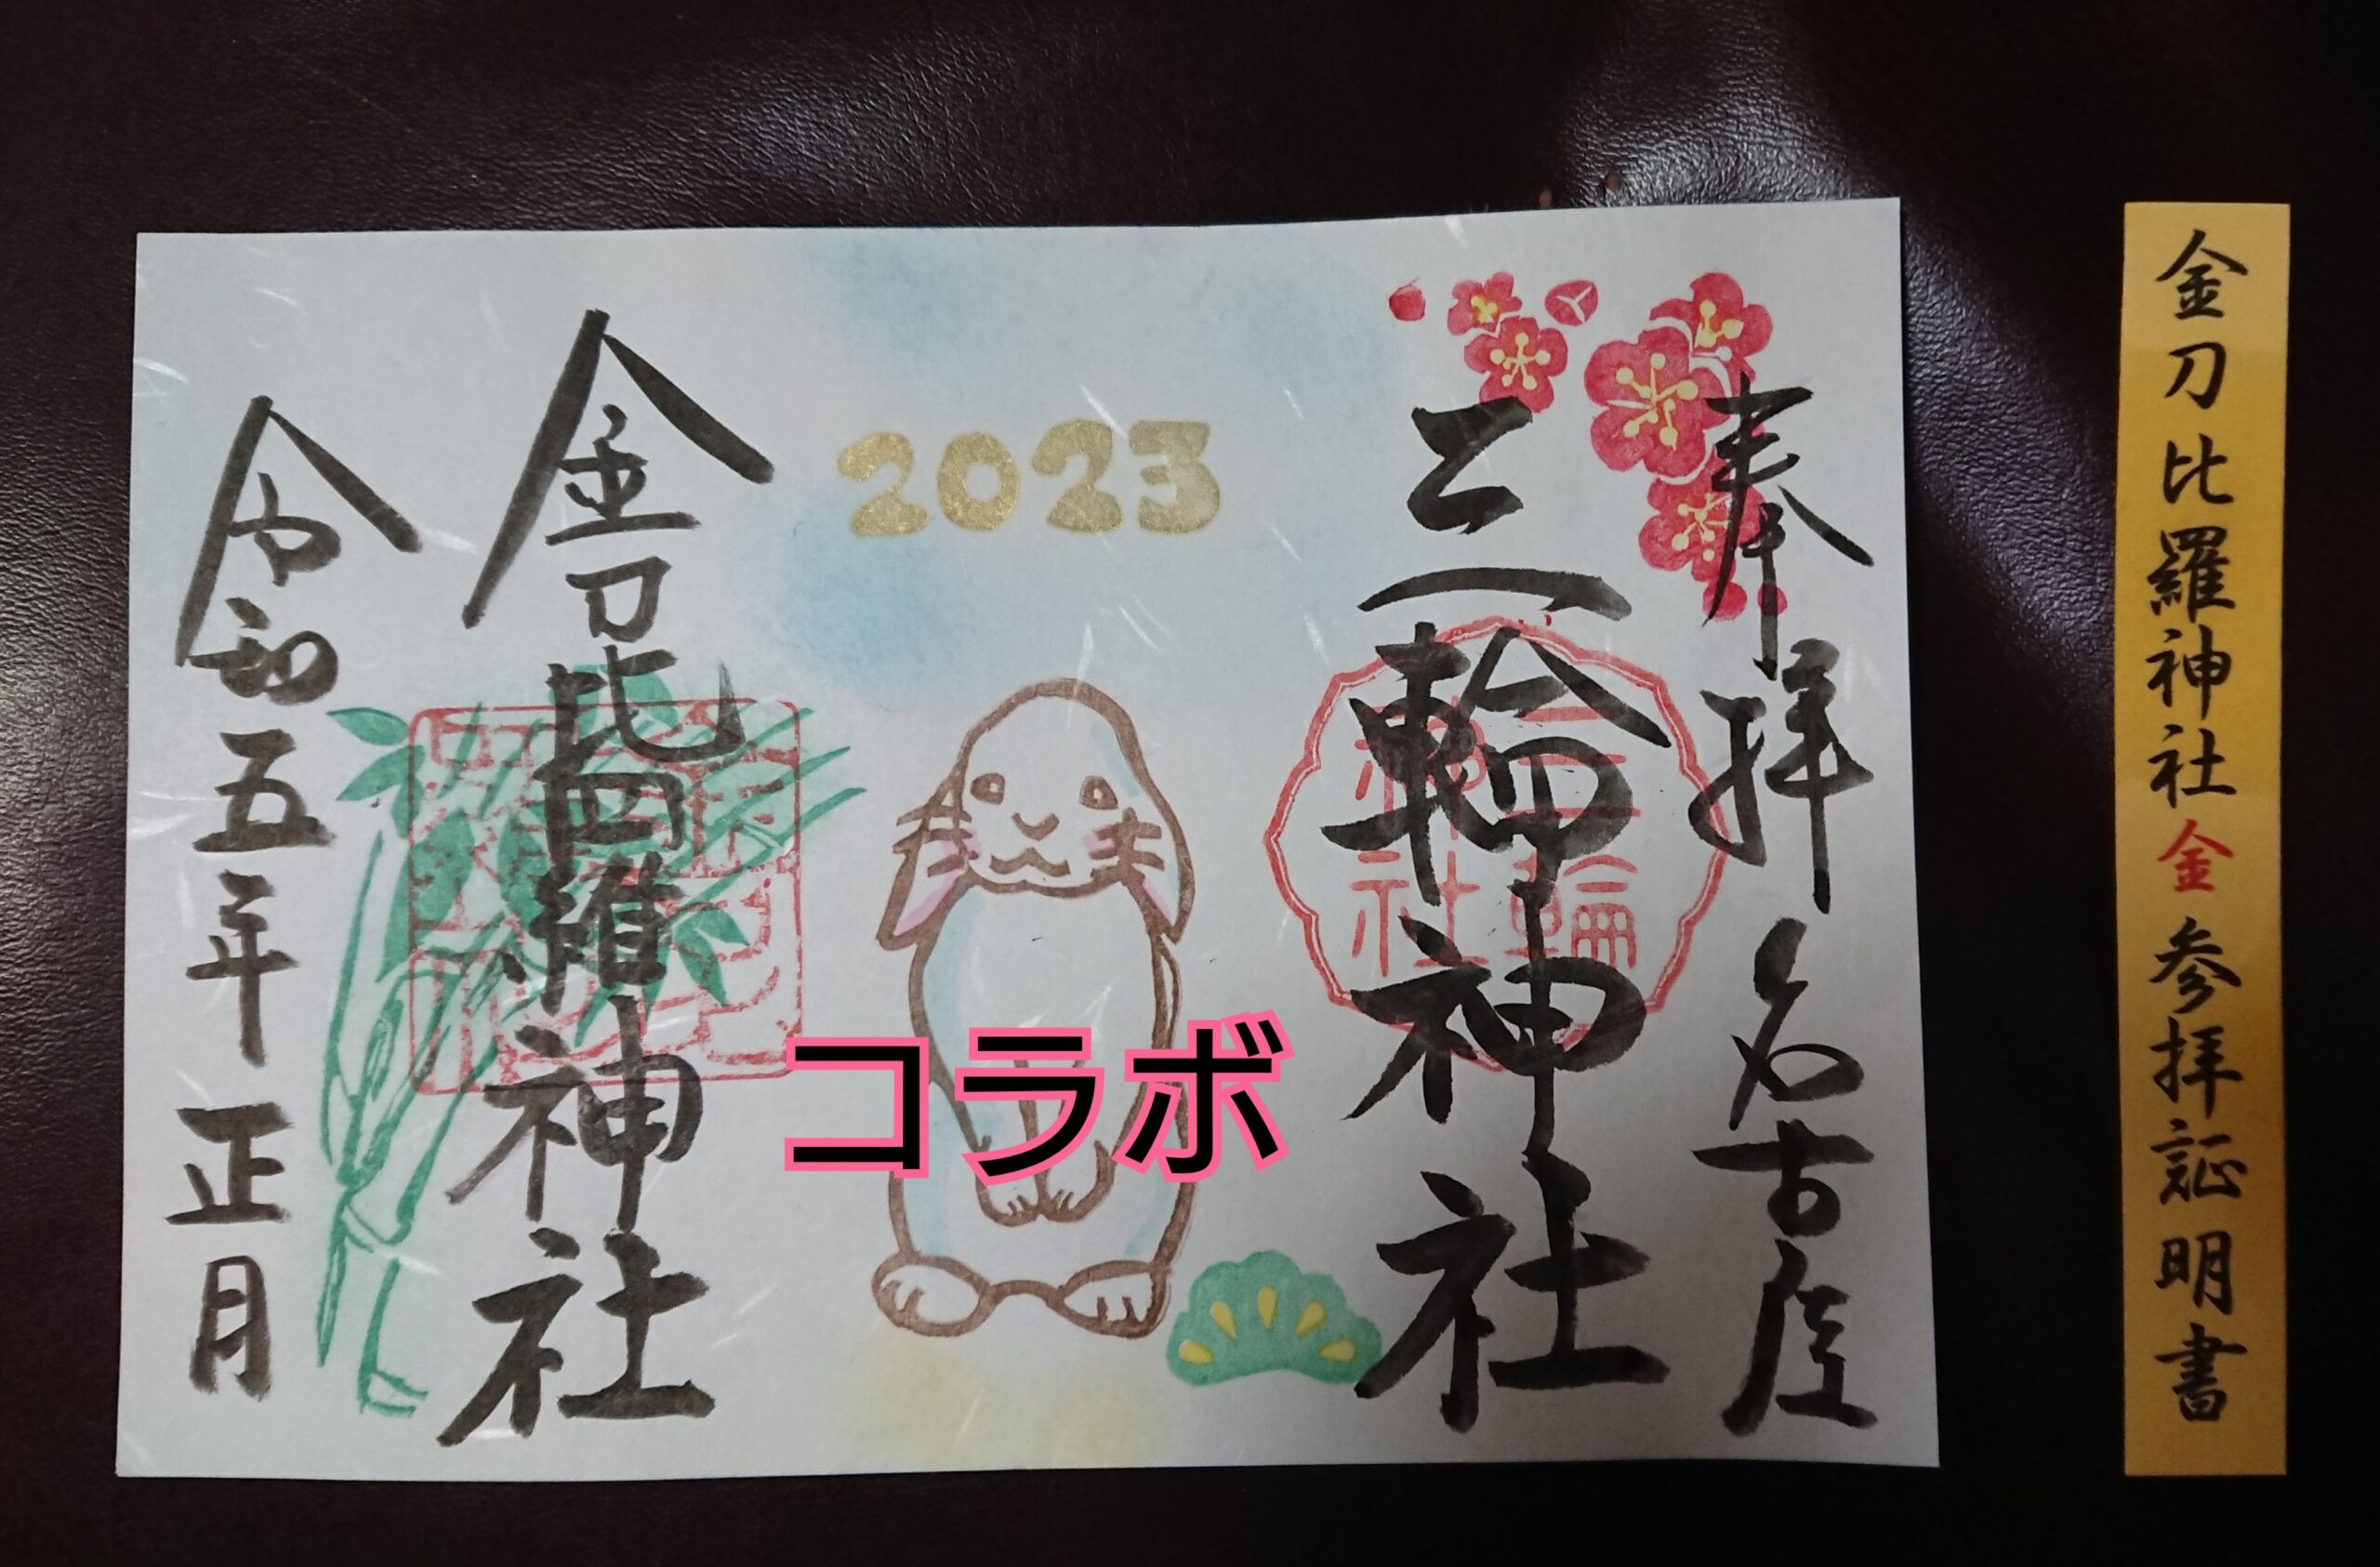 奉拝 名古屋
三輪神社
三輪神社
2023
コラボ
金刀比羅神社
令和五年 正月
金刀比羅神社金参拝証明書